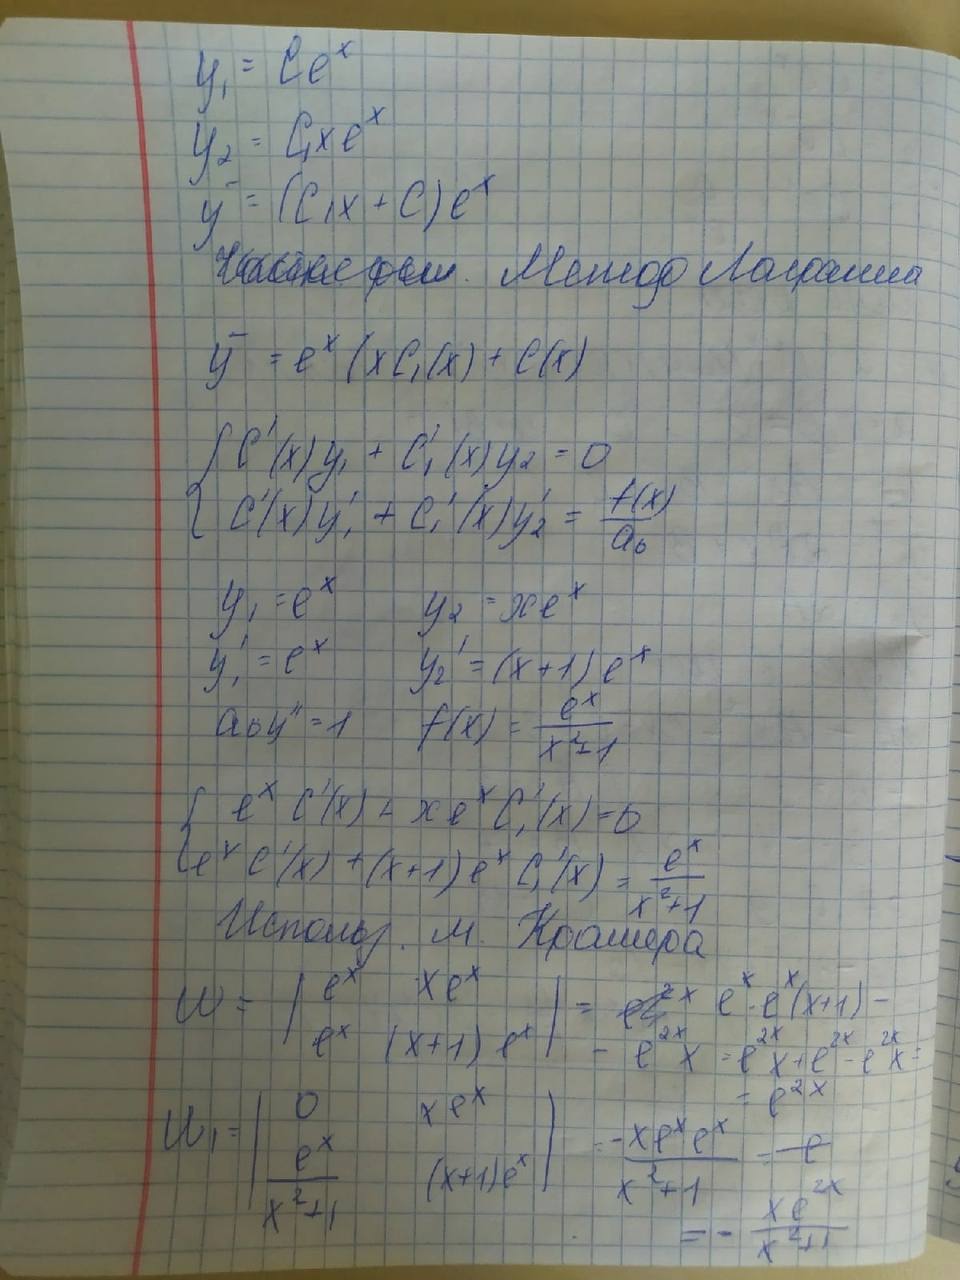 y₁ = Ce^x
y₂ = C₁xe^x
ȳ = (C₁x + C)e^x
Частное реш. Метод Лагранжа
ȳ = e^x (xC₁(x) + C(x)
{ C'(x)y₁ + C₁'(x)y₂ = 0
C'(x)y₁' + C₁'(x)y₂' = f(x)/a₀
y₁ = e^x y₂ = xe^x
y₁' = e^x y₂' = (x+1)e^x
a₀y'' = 1 f(x) = e^x/(x²+1)
{ e^x C'(x) + xe^x C₁'(x) = 0
e^x C'(x) + (x+1)e^x C₁'(x) = e^x/(x²+1)
Использ. м. Крамера
W = | e^x xe^x
e^x (x+1)e^x | = e^x · e^x(x+1) −
− e^2x x = e^2x x + e^2x − e^2x x =
= e^2x
W₁ = | 0 xe^x
e^x/(x²+1) (x+1)e^x | = −xe^x e^x/(x²+1) =
= − xe^2x/(x²+1)